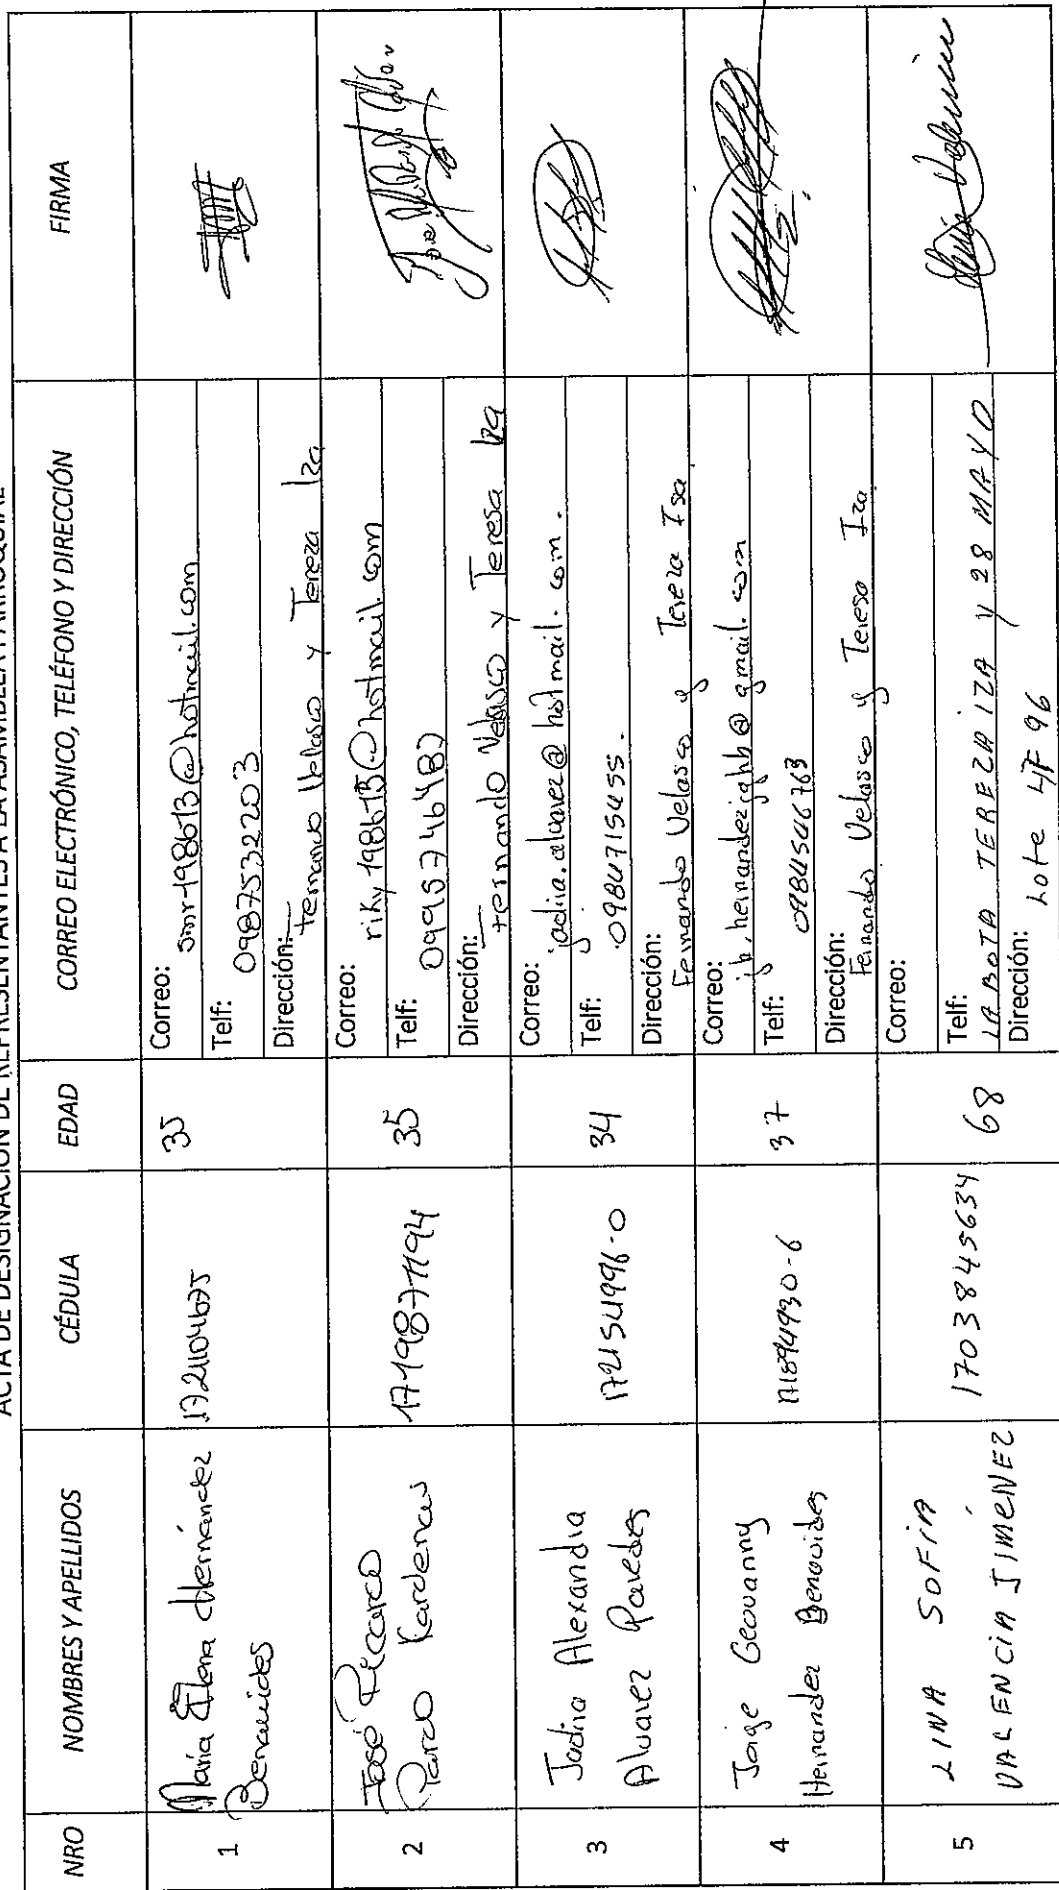 ACTA DE DESIGNACIÓN DE REPRESENTANTES A LA ASAMBLEA PARROQUIAL
NRO NOMBRES Y APELLIDOS CÉDULA EDAD CORREO ELECTRÓNICO, TELÉFONO Y DIRECCIÓN FIRMA
1 María Elena Hernández
Benavides
1721104675 35
Correo: smr-198613@hotmail.com
Telf: 0987532203
Dirección: Fernando Velasco y Tereza Iza
2 José Riccardo
Parco Kardenas
1719871194 35
Correo: riky198613@hotmail.com
Telf: 0995746482
Dirección: Fernando Velasco y Teresa Iza
3 Jadira Alexandra
Alvarez Paredes
172154996-0 34
Correo: jadira.alvarez@hotmail.com.
Telf: 0984715455.
Dirección: Fernando Velasco y Tereza Isa
4 Jorge Geovanny
Hernandez Benavides
171894930-6 37
Correo: jb.hernandezjghb@gmail.com
Telf: 0984546763
Dirección: Fernando Velasco y Teresa Iza
5 LINA SOFIA
VALENCIA JIMÉNEZ
1703845634 68
Correo:
Telf:
LA BOTA TEREZA IZA Y 28 MAYO
Dirección: Lote 4F 96